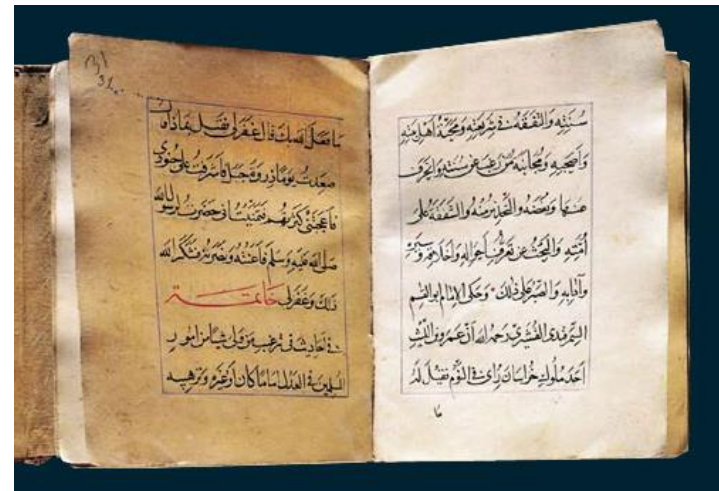 سنته والتفقه في شريعته ومحبة أهل بيته
وأصحبه ومجانبة من رغب عن سنته وانحرف
عنها وبغضه والتحذير منه والشفقة على
أمته والبحث عن تعرف أحواله وأخلاقه وسيره
وآدابه والصبر على ذلك وحكى الإمام أبو القسم
القشيري رحمه الله أن عمرو بن الليث
أحد ملوك خراسان رأى في النوم فقيل له
ما
31
31
ما فعل الله بك قال غفر لي فقيل بماذا قال
صعدت يوما ذروة جبل فأشرفت على جنودي
فأعجبتني كثرتهم فتمنيت أني حضرت رسول الله
صلى الله عليه وسلم فأعنته ونصرته فشكر الله
ذلك وغفر لي خاتمة
في أحاديث في ترغيب من ولي شيأ من أمور
المسلمين في العدل إماما كان أو غيره وترهيبه